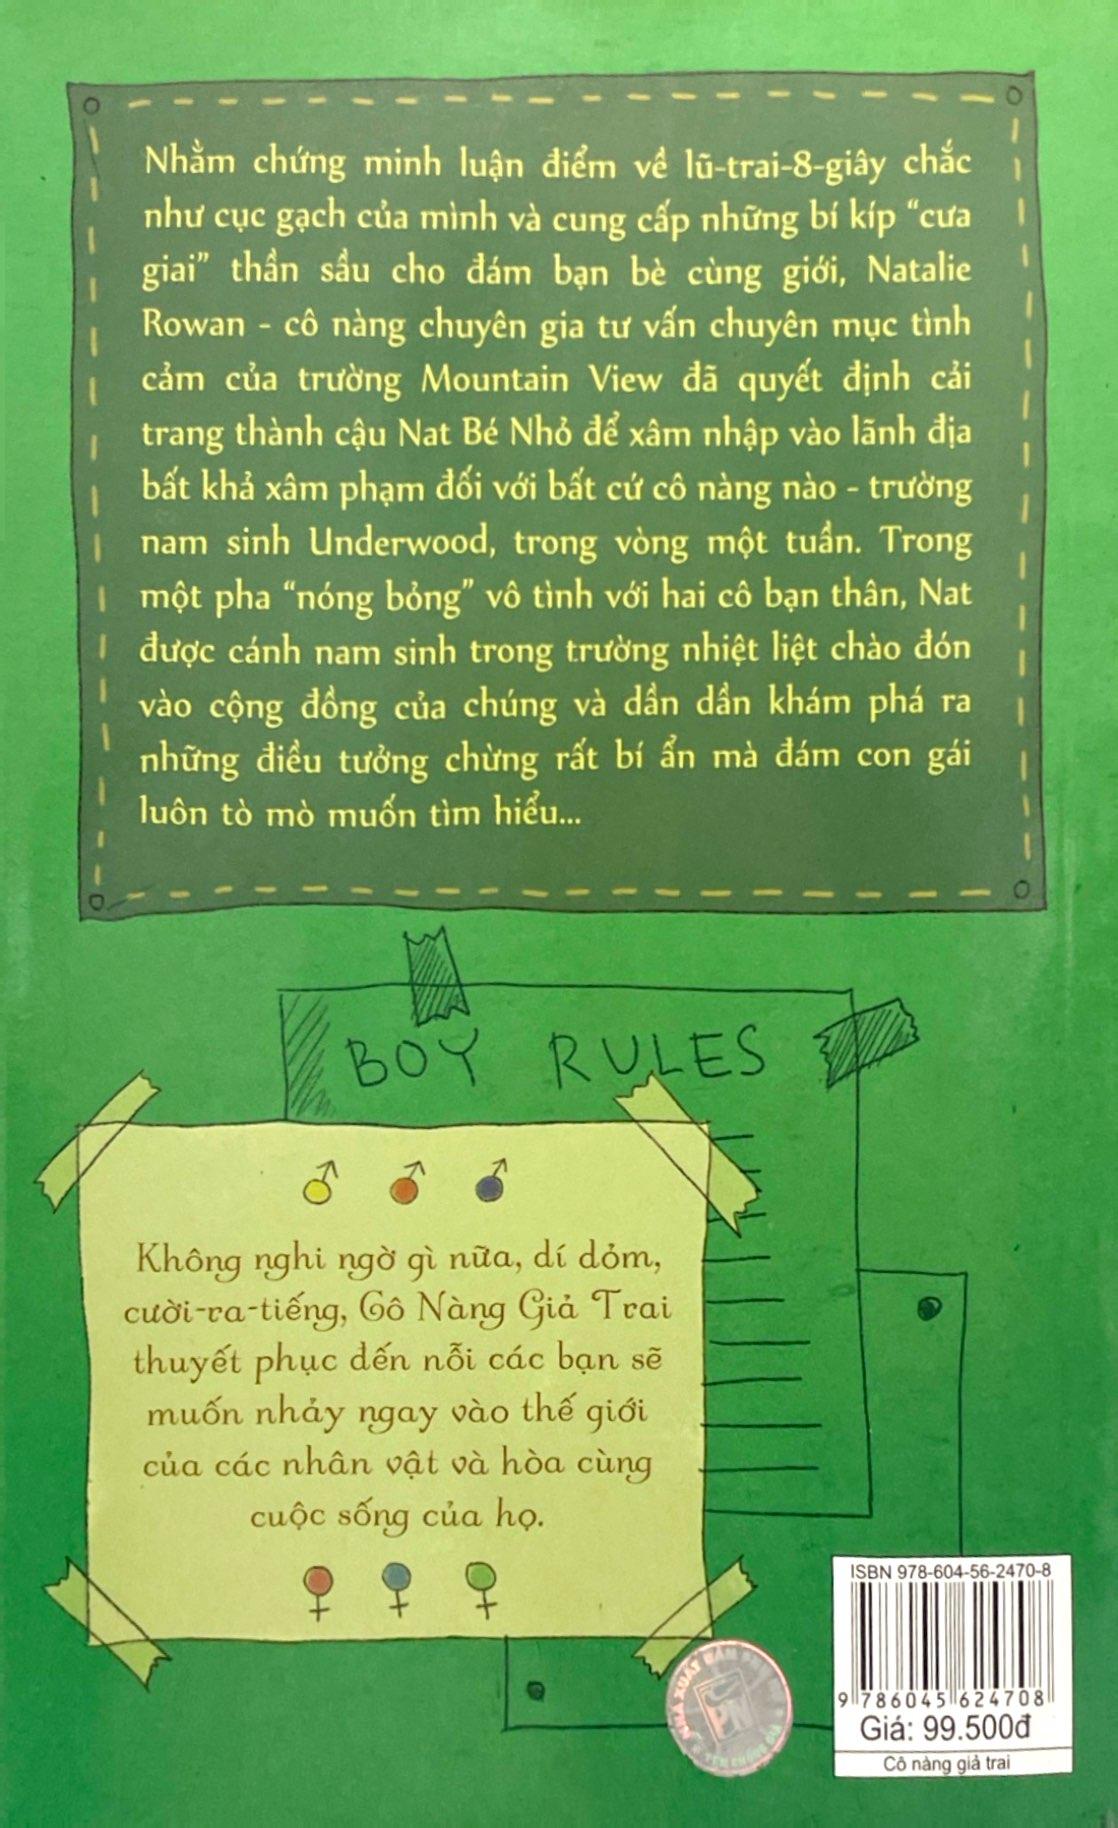 Nhằm chứng minh luận điểm về lũ-trai-8-giây chắc
như cục gạch của mình và cung cấp những bí kíp “cưa
giai” thần sầu cho đám bạn bè cùng giới, Natalie
Rowan - cô nàng chuyên gia tư vấn chuyên mục tình
cảm của trường Mountain View đã quyết định cải
trang thành cậu Nat Bé Nhỏ để xâm nhập vào lãnh địa
bất khả xâm phạm đối với bất cứ cô nàng nào - trường
nam sinh Underwood, trong vòng một tuần. Trong
một pha “nóng bỏng” vô tình với hai cô bạn thân, Nat
được cánh nam sinh trong trường nhiệt liệt chào đón
vào cộng đồng của chúng và dần dần khám phá ra
những điều tưởng chừng rất bí ẩn mà đám con gái
luôn tò mò muốn tìm hiểu...
BOY RULES
Không nghi ngờ gì nữa, dí dỏm,
cười-ra-tiếng, Cô Nàng Giả Trai
thuyết phục đến nỗi các bạn sẽ
muốn nhảy ngay vào thế giới
của các nhân vật và hòa cùng
cuộc sống của họ.
ISBN 978-604-56-2470-8
9 786045 624708
Giá: 99.500đ
Cô nàng giả trai
NHÀ XUẤT BẢN